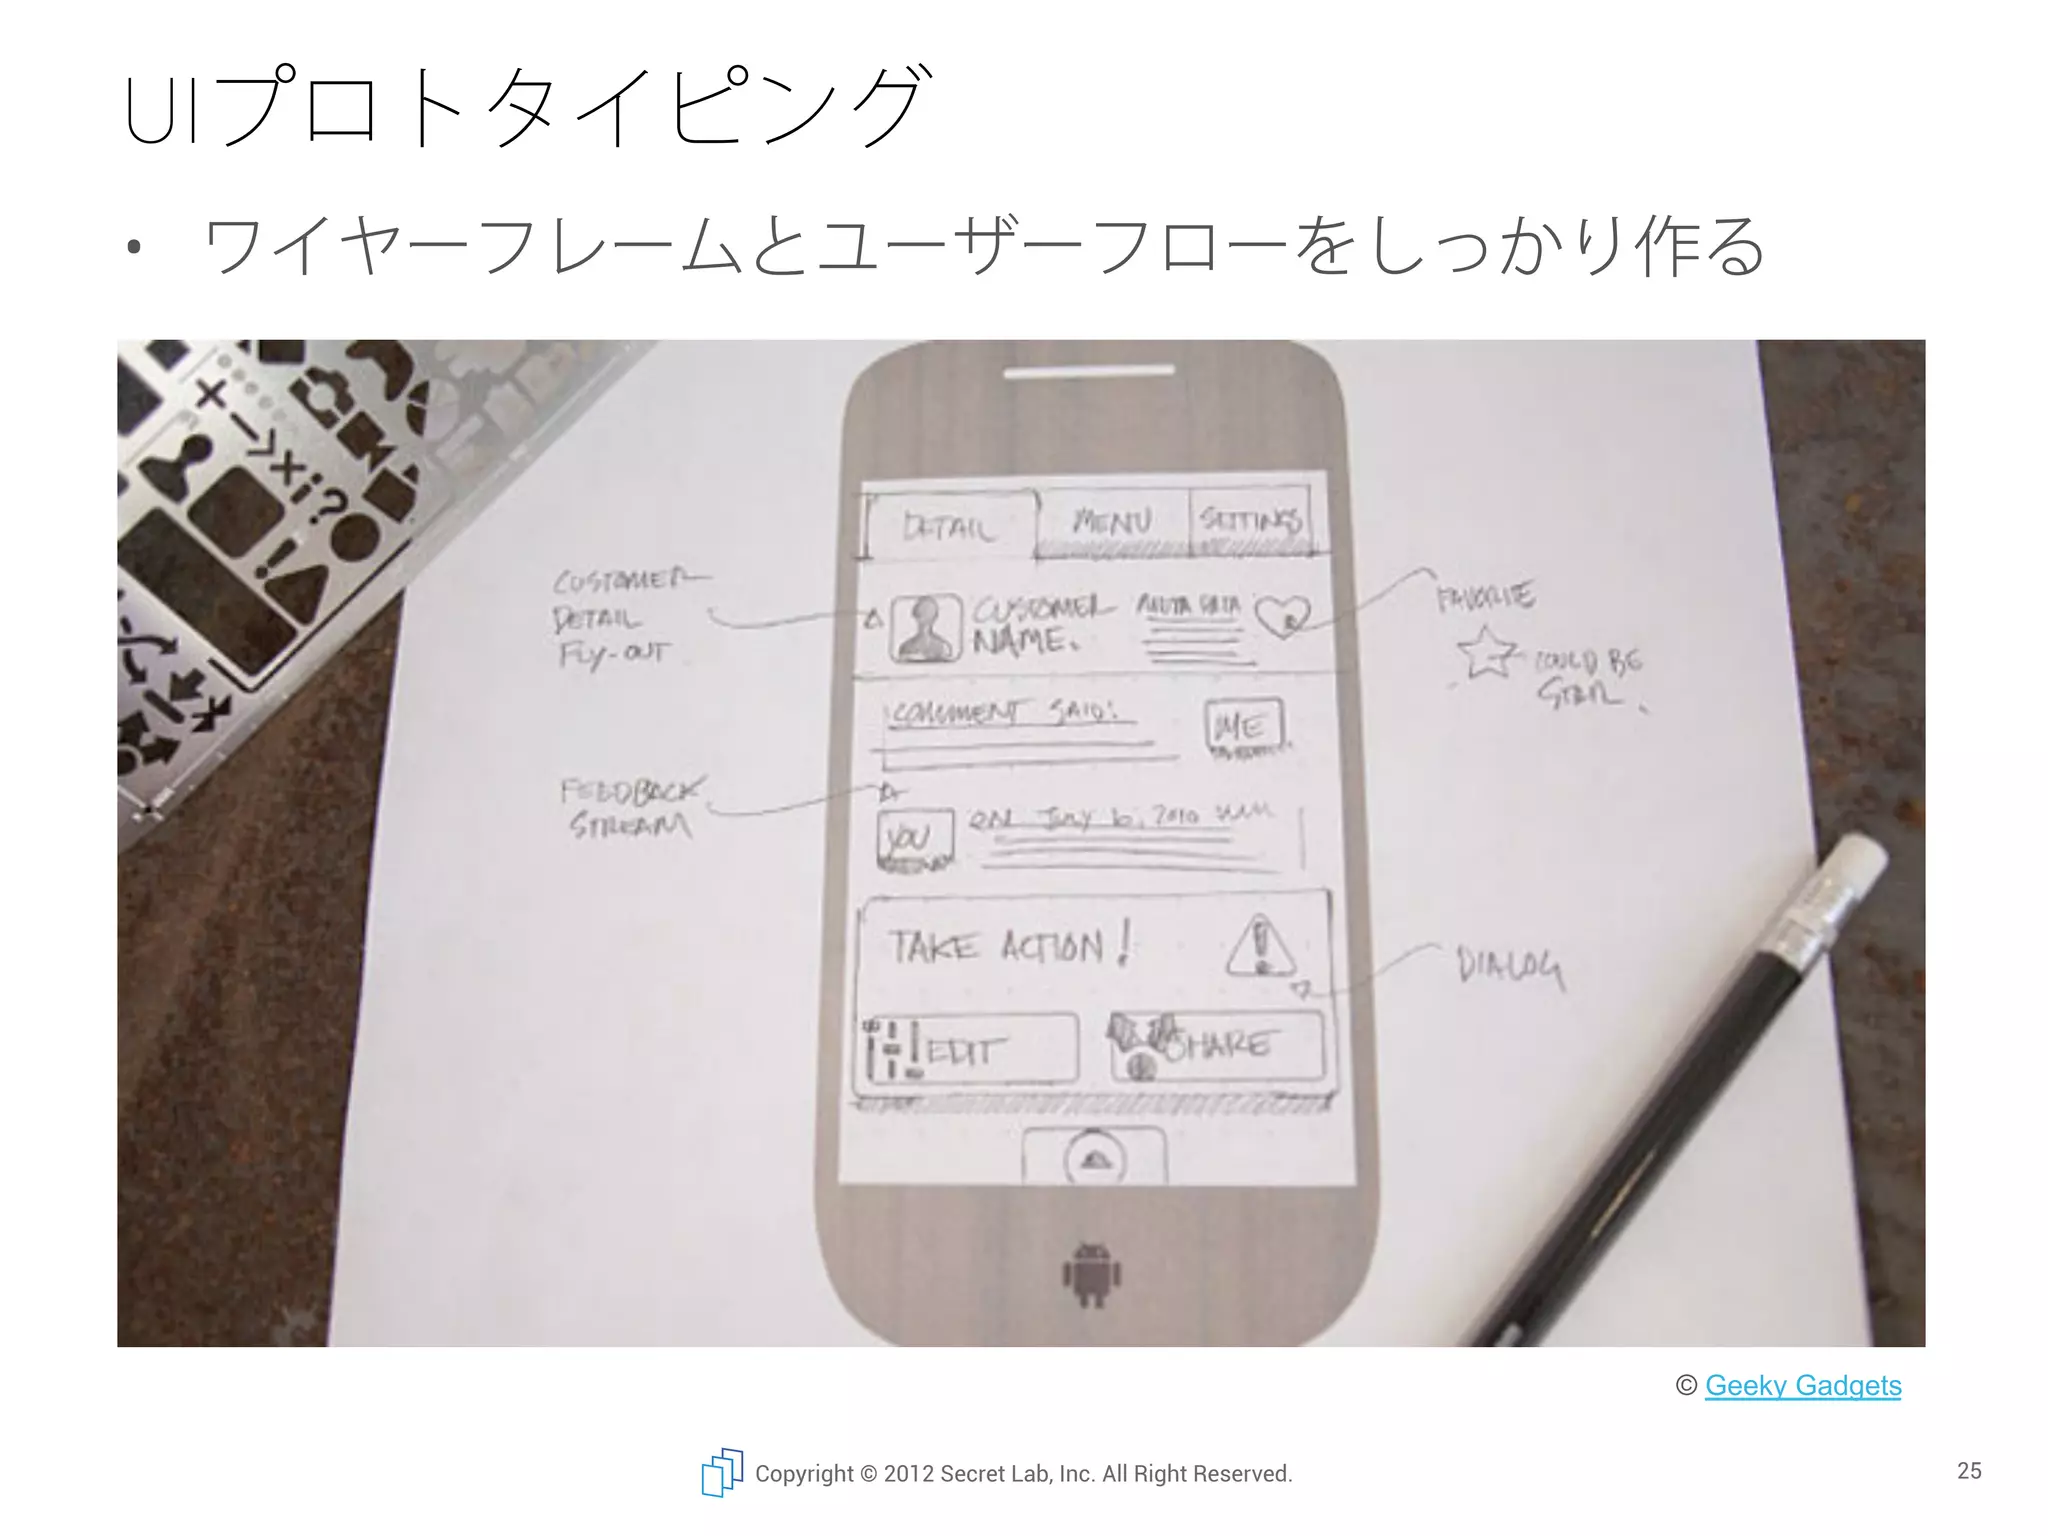 UIプロトタイピング
• ワイヤーフレームとユーザーフローをしっかり作る
DETAIL MENU SETTINGS
CUSTOMER
DETAIL
FLY-OUT
CUSTOMER
NAME.
FAVORITE
COULD BE
STAR.
COMMENT SAID:
ME
FEEDBACK
STREAM
YOU
ON JULY 6, 2010
TAKE ACTION!
DIALOG
EDIT
SHARE
© Geeky Gadgets
Copyright © 2012 Secret Lab, Inc. All Right Reserved.
25